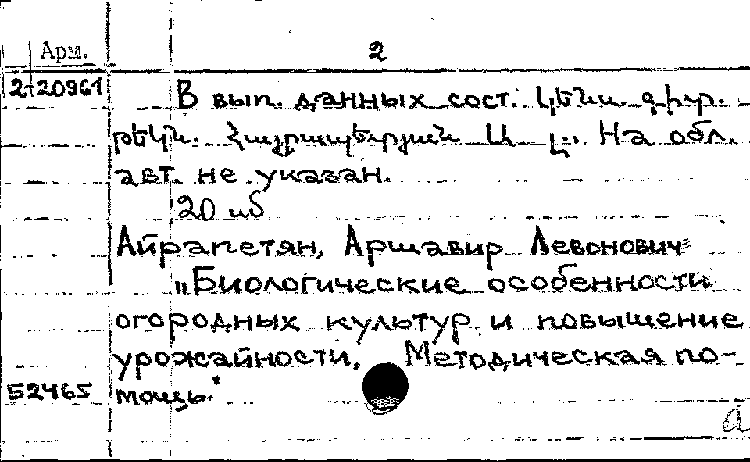 Арм.
2
2-20961
В вып. данных сост. կենս. գիտ.
թեկն. Հայրապետյան Ա. Լ. На обл.
авт. не указан.
20 սմ
Айрапетян, Аршавир Левонович
"Биологические особенности
огородных культур и повышение
урожайности. Методическая по-
52465 мощь."